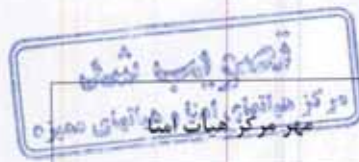 تصویب شد
مرکز هیأتهای امنا و هیأتهای ممیزه
مهر مرکز هیات امنا